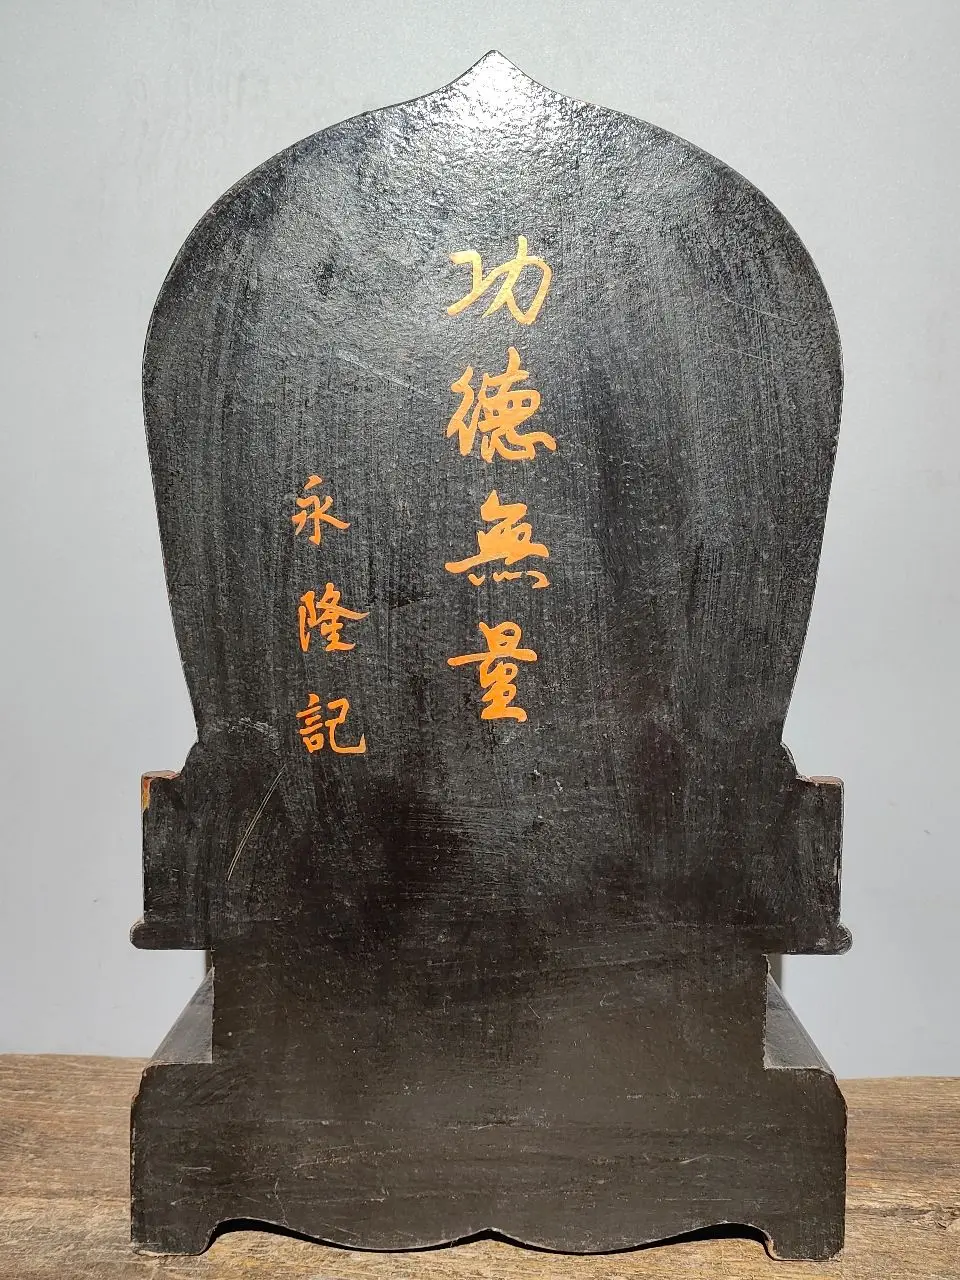 功德無量
永隆記